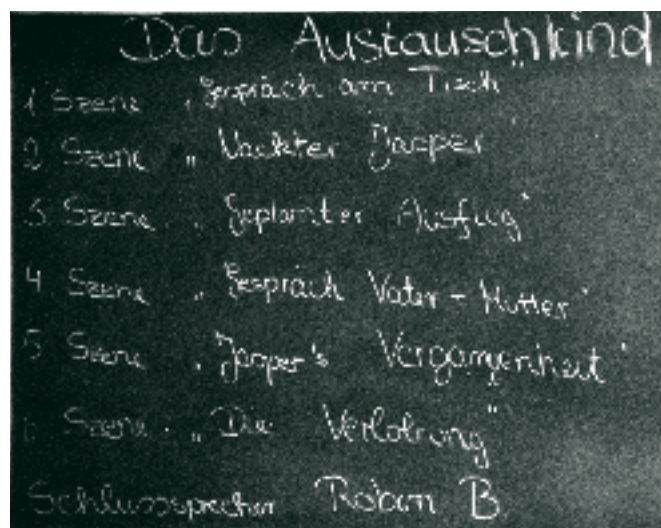 Das Austauschkind
1 Szene „Gespräch am Tisch"
2 Szene „Nackter Jasper"
3 Szene „Geplanter Ausflug"
4 Szene „Gespräch Vater + Mutter"
5 Szene „Jasper's Vergangenheit"
Szene „Die Verlobung"
Schlusssprecher Robin B.